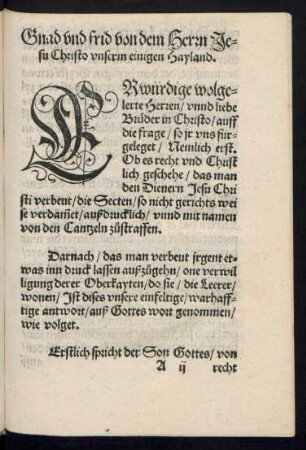 Gnad vnd frid von dem Herrn Je-
su Christo vnserm einigen Hayland.
ERwürdige wolge-
lerte Herren / vnnd liebe
Brüder in Christo / auff
die frage / so jr vns für-
geleget / Nemlich erst.
Ob es recht vnd Christ
lich geschehe / das man
den Dienern Jesu Chri
sti verbeut / die Secten / so nicht gerichts wei
se verdammet / außdrucklich / vnnd mit namen
von den Cantzeln zůstraffen.
Darnach / das man verbeut jrgent et-
was inn druck lassen außzůgehn / one verwil
ligung derer Oberkayten / do sie / die Leerer /
wonen / Ist dises vnsere einfeltige / warhaff-
tige antwort / auß Gottes wort genommen /
wie volget.
Erstlich spricht der Son Gottes / von
A ij recht